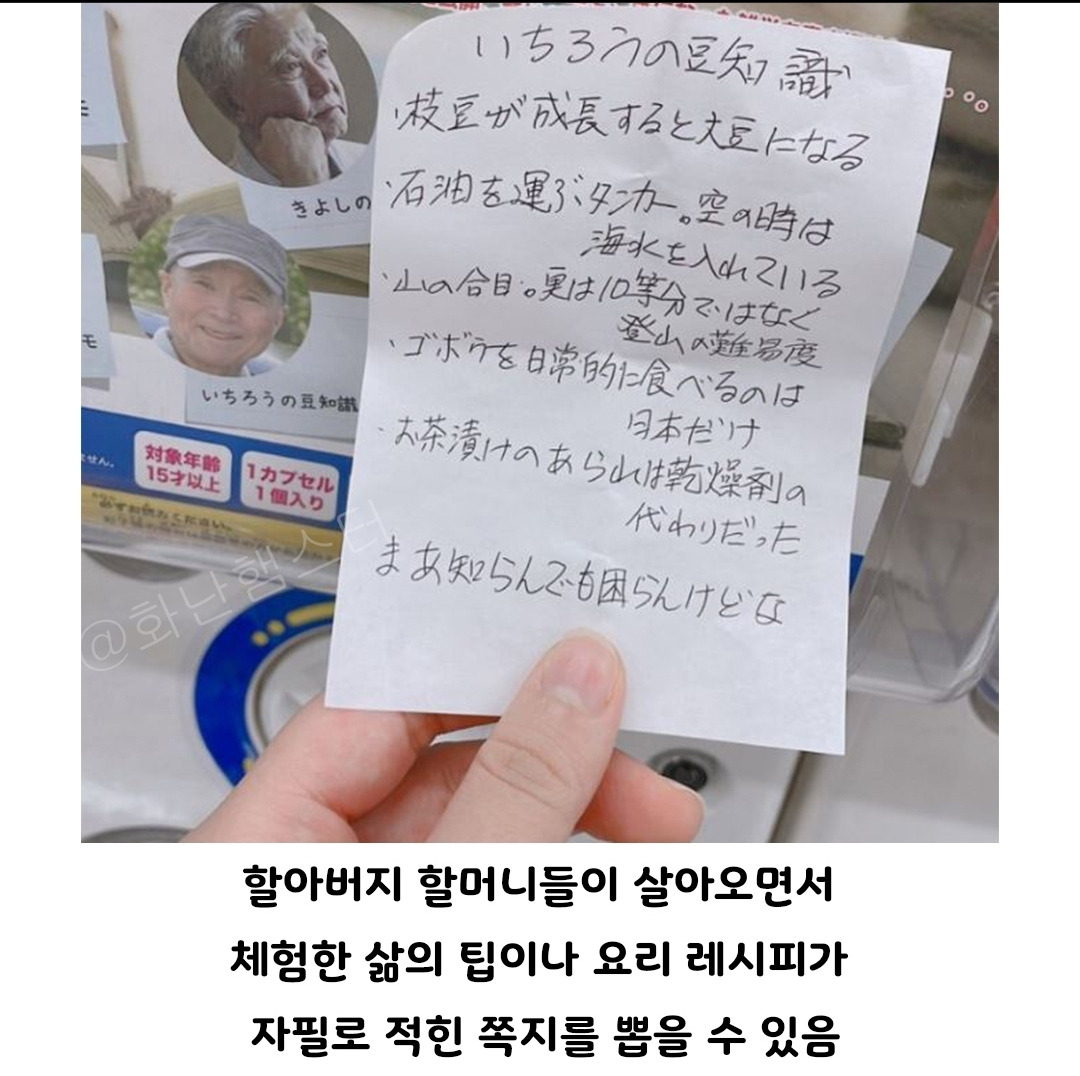 いちろうの豆知識
・枝豆が成長すると大豆になる
・石油を運ぶタンカー。空の時は
海水を入れている
・山の合目。実は10等分ではなく
登山の難易度
・ゴボウを日常的に食べるのは
日本だけ
・お茶漬けのあられは乾燥剤の
代わりだった
まあ知らんでも困らんけどな
きよしの
モ
いちろうの豆知識
ません。
対象年齢
15才以上
1カプセル
1個入り
必ずお読みください。
@화난햄스터
할아버지 할머니들이 살아오면서
체험한 삶의 팁이나 요리 레시피가
자필로 적힌 쪽지를 뽑을 수 있음